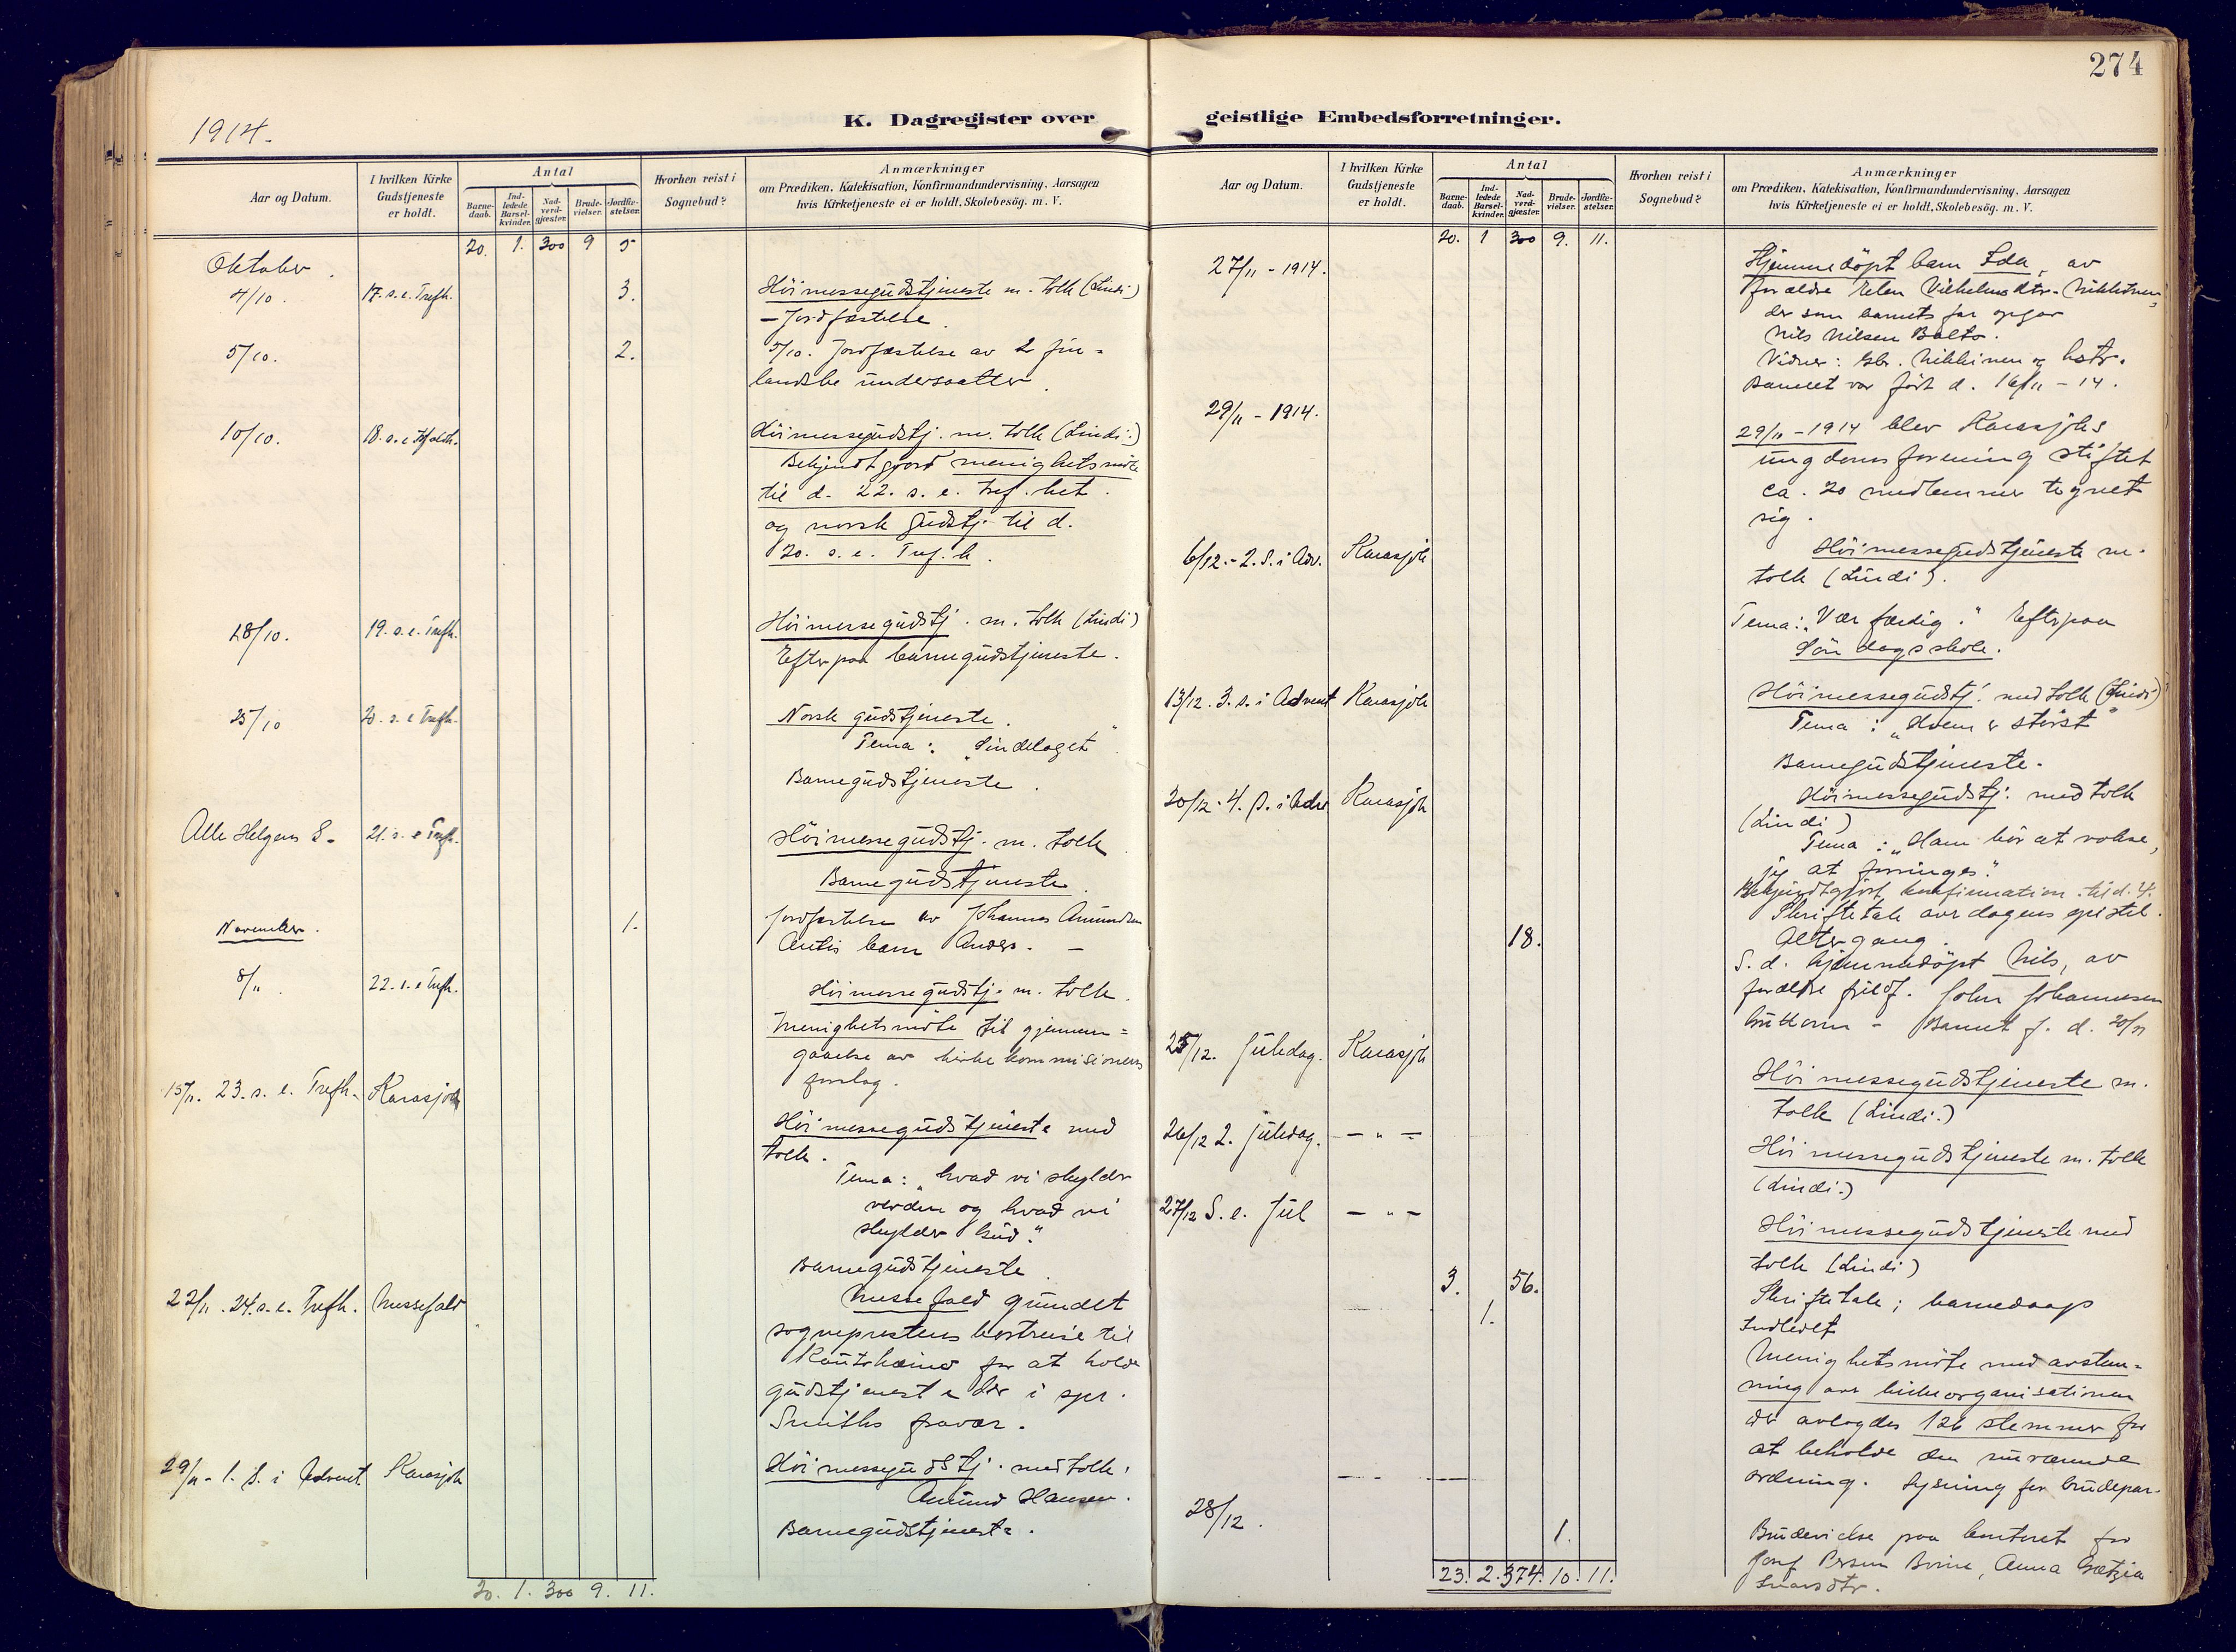 274
1914.
K. Dagregister over geistlige Embedsforretninger.
Aar og Datum.
I hvilken Kirke Gudstjeneste er holdt.
Antal
Barnedaab.
Indledede Barselkvinder.
Nadverdgjæster.
Brudevielser.
Jordfæstelser.
Hvorhen reist i Sognebud?
Anmærkninger
om Prædiken, Katekisation, Konfirmandundervisning, Aarsagen
hvis Kirketjeneste ei er holdt, Skolebesøg. m. V.
20. 1. 300 9 5
Oktober.
4/10. 17. s. e. Trefh. 3. Höimessegudstjeneste m. tolk (Lindi)
- Jordfæstelse.
5/10. 2. 5/10. Jordfæstelse av 2 fin=
landske undersaatter.
10/10. 18. s. e. Höimessegudstj. m. tolk (Lindi.)
Bekjendtgjord menighetsmöte
til d. 22. s. e. Tref. het.
og norsk gudstj. til d.
20. s. e. Tref. h.
18/10. 19. s. e. Trefh. Höimessegudstj. m. tolk (Lindi)
Efterpaa barnegudstjeneste.
25/10 20. s. e Trefh. Norsk gudstjeneste.
Tema: "Sindelaget".
Barnegudstjeneste.
Alle Helgens S. 21. s. e Trefh. Höimessegudstj. m. tolk.
Barnegudstjeneste.
November. 1. Jordfæstelse av Johannes Amundsen
Antis barn Anders. -
8/11. 22. s. e Trefh. Höimessegudstj. m. tolk.
Menighetsmöte til gjennem=
gaaelse av kirkekommisionens
forslag.
15/11. 23. s. e. Trefh. Karasjok
Höimessegudstjeneste med
tolk.
Tema: "hvad vi skylder
verden og hvad vi
skylder Gud."
Barnegudstjeneste.
22/11. 24. s. e. Trefh. Messefald Messefald grundet
sogneprestens bortreise til
Kautokeino for at holde
gudstjeneste der i spr.
Smiths fravær.
29/11 - 1. S. i Advent Karasjok Höimessegudstj. med tolk.
Amund Hansen.
Barnegudstjeneste.
20. 1. 300 9. 11.
Aar og Datum.
I hvilken Kirke Gudstjeneste er holdt.
Antal
Barnedaab.
Indledede Barselkvinder.
Nadverdgjæster.
Brudevielser.
Jordfæstelser.
Hvorhen reist i Sognebud?
Anmærkninger
om Prædiken, Katekisation, Konfirmandundervisning, Aarsagen
hvis Kirketjeneste ei er holdt, Skolebesøg. m. V.
20. 1 300 9. 11.
27/11 - 1914. Hjemmedöpt barn Ida, av
forældre Elen Vilhelmsdtr.
der som barnets far opgav
Nils Nilsen Balto.
Vidner: og hstr.
Barnet var født d. 16/11 - 14.
29/11 - 1914. 29/11 - 1914 blev Karasjoks
ungdomsforening stiftet
ca. 20 medlemmer tegnet
sig.
6/12. - 2. S. i Adv. Karasjok Höimessegudstjeneste m.
tolk (Lindi).
Tema: "Vær færdig." Efterpaa
Söndagsskole.
13/12. 3. s. i Advent Karasjok Höimessegudstj. med tolk (Lindi)
Tema: "Hvem er störst"
Barnegudstjeneste.
20/12. 4. S. i Adv Karasjok Höimessegudstj. med tolk
(Lindi)
Tema: "Ham bör at vokse,
jeg at forringes".
Bekjendtgjort konfirmation til d. 4.
Skriftetale over dagens epistel.
18. Altergang.
S. d. hjemmedöpt Nils, av
forældre John Johannesen
Guttorm - Barnet f. d.
25/12. Juledag. Karasjok Höimessegudstjeneste m.
tolk (Lindi.)
26/12 2. Juledag. - " - Höimessegudstjeneste m. tolk
(Lindi.)
27/12 S. e. Jul - " - Höimessegudstjeneste med
tolk (Lindi)
3. 56. Skriftetale; barnedaap
1. Indledet
Menighetsmöte med avstem=
ning over kirkeorganisationen
der avlagdes 126 stemmer for
at beholde den nuværende
ordning. Lysning for brudepar.
28/12. 1. Brudevielse paa kontoret for
Josef Persen Boine, Anna
23. 2. 374. 10. 11.